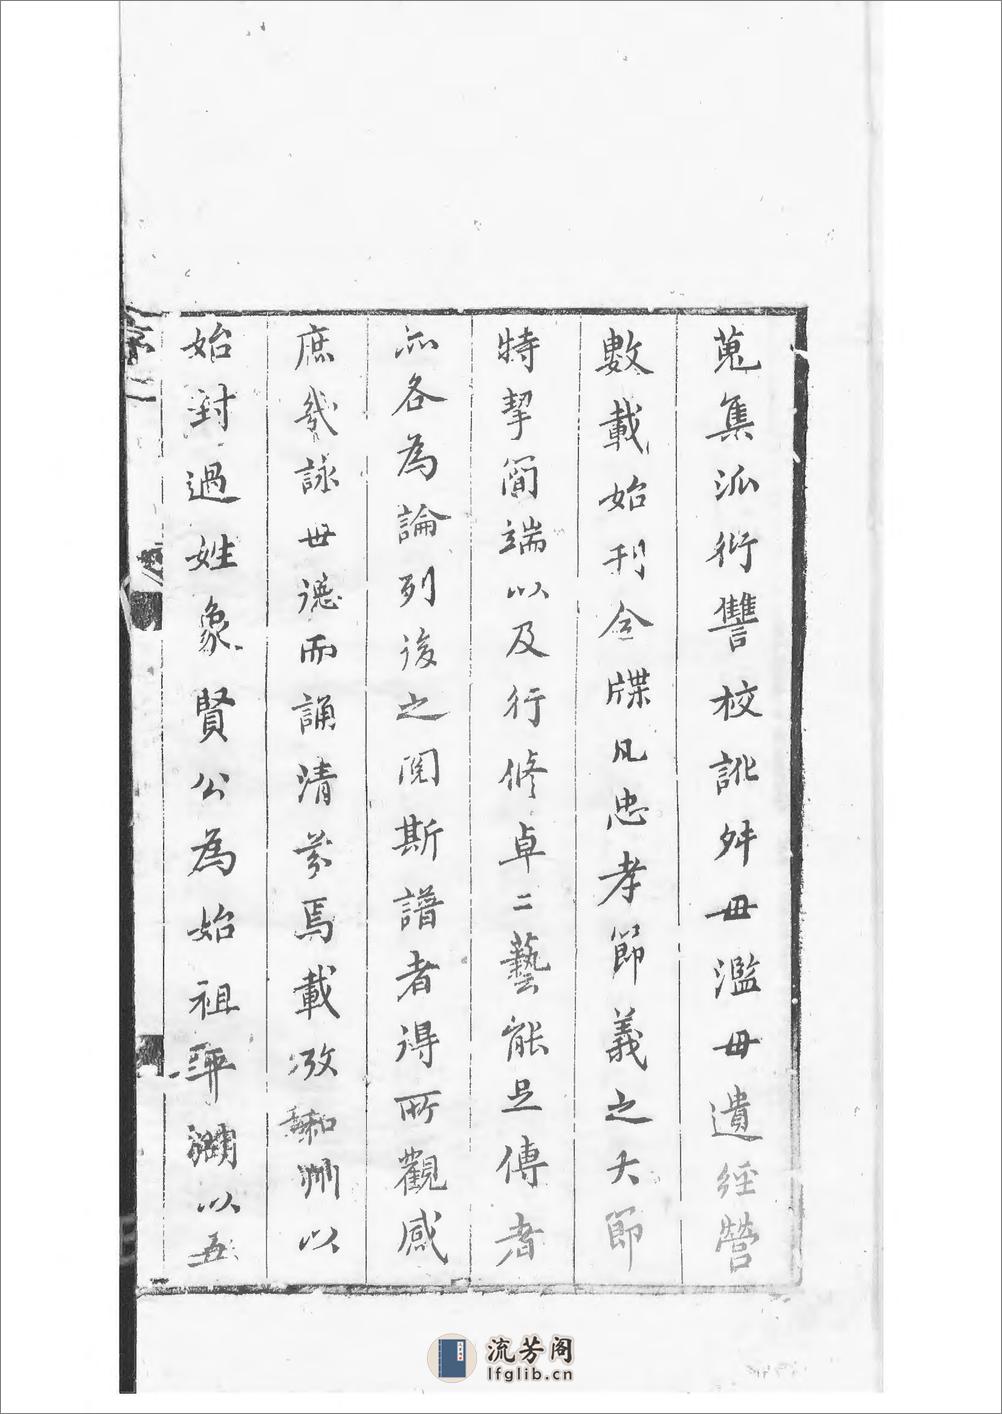 蒐集派衍讐校訛舛毋濫毋遺經營
數載始刊今牒凡忠孝節義之大節
特挈簡端以及行修卓二藝能足傳者
亦各為論列後之閱斯譜者得所觀感
庶幾詠世德而誦清芬焉載攷和州以
始封過姓象賢公為始祖平湖以五
序
二
流芳阁
lfglib.cn